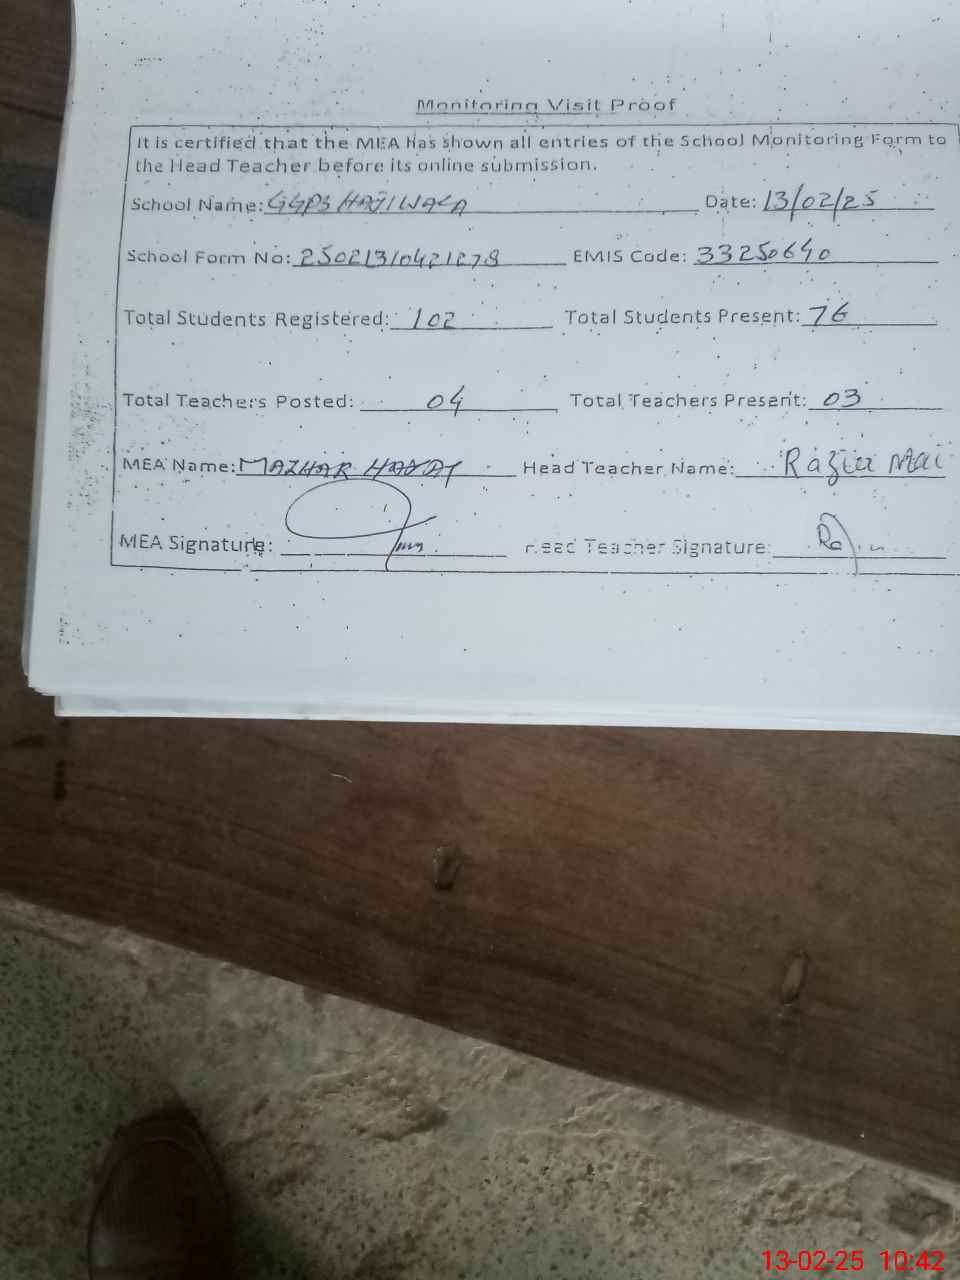 Monitoring Visit Proof
It is certified that the MEA has shown all entries of the School Monitoring Form to
the Head Teacher before its online submission.
School Name: GGPS HAJIWALA Date: 13/02/25
School Form No: 25021310421278 EMIS Code: 33250640
Total Students Registered: 102 Total Students Present: 76
Total Teachers Posted: 04 Total Teachers Present: 03
MEA Name: MAZHAR HAYAT Head Teacher Name: Razia Mai
MEA Signature: Head Teacher Signature:
13-02-25 10:42